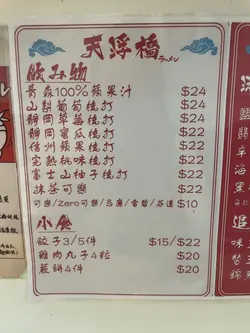 天浮橋
ラーメン
飲み物
青森100%蘋果汁 $24
山梨葡萄梳打 $24
靜岡草莓梳打 $24
靜岡蜜瓜梳打 $22
信州蘋果梳打 $22
完熟桃味梳打 $22
富士山柚子梳打 $22
抹茶可樂 $22
可樂/Zero可樂/忌廉/雪碧/品運 $10
小食
餃子3/5件 $15/$22
雞肉丸子4粒 $20
煎餅4件 $20
追
味
替
錦